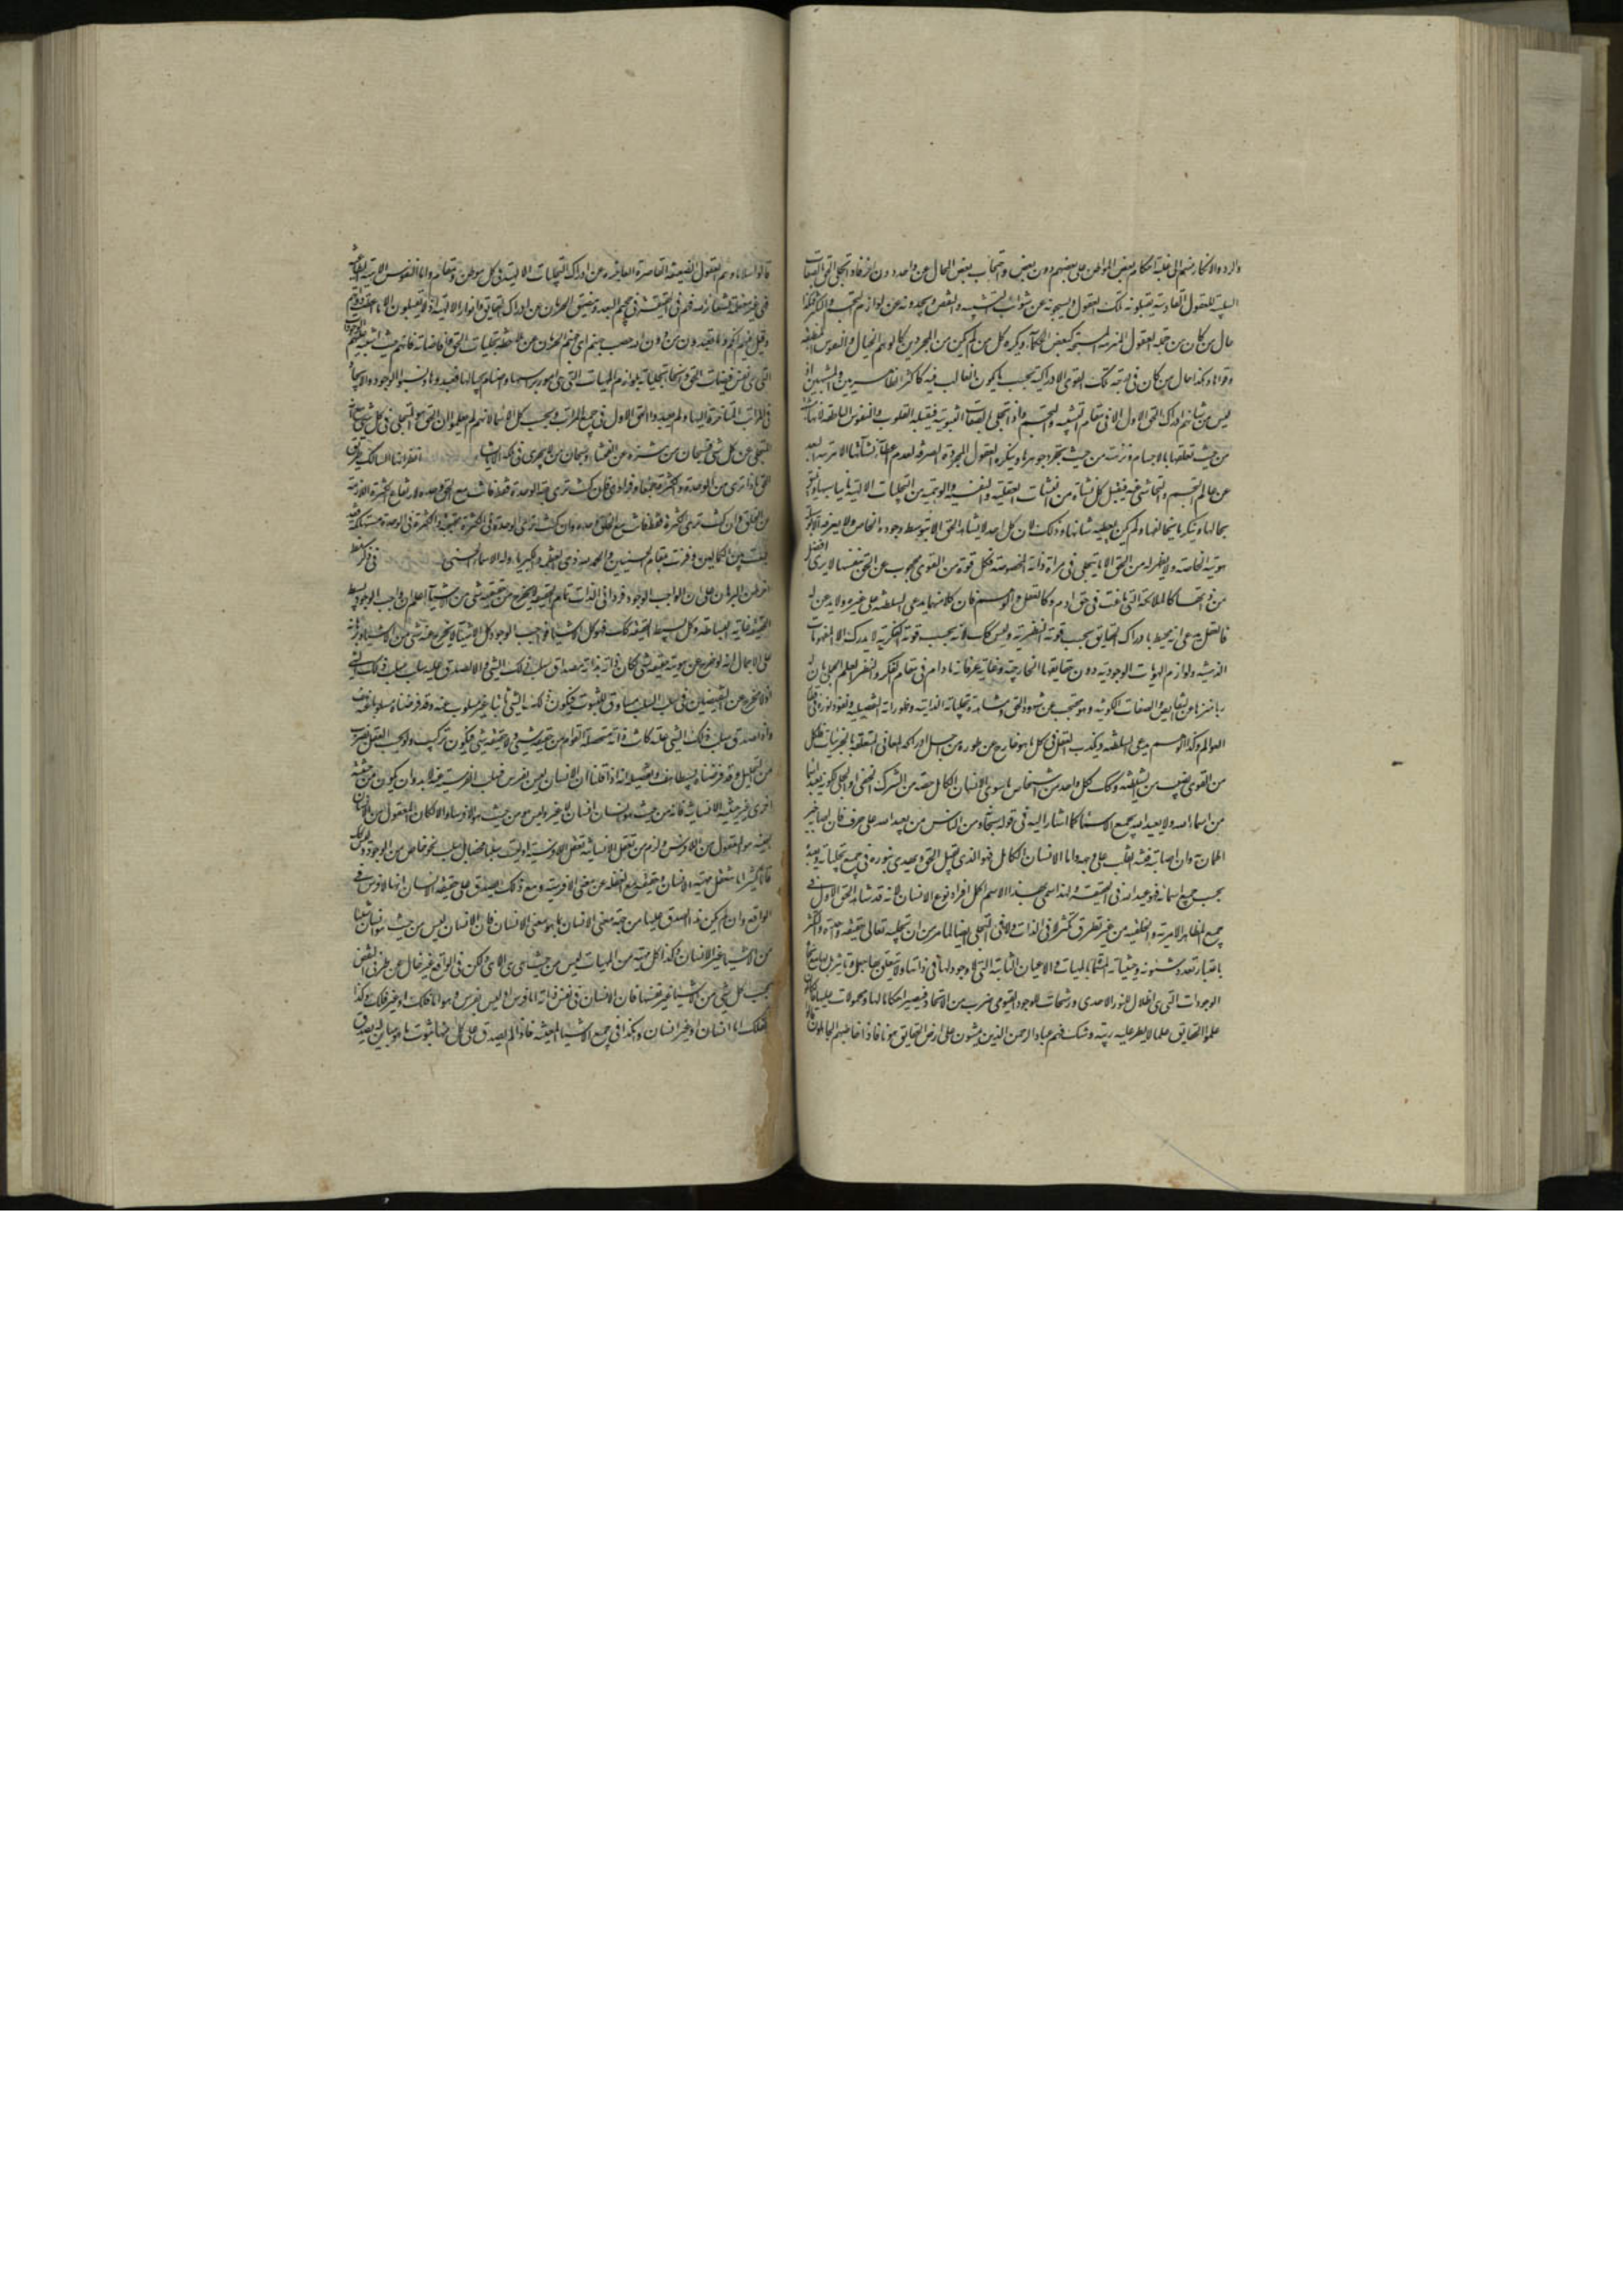 والرد والانكار منهم الى غلبة احكام بعض المواطن على بعضهم دون بعض واحتجاب بعض المجالي عن واحد دون اخر فاذا تجلى الحق بالصفات
السلبية للعقول القادسة يقبلونه تلك العقول ويسبحونه عن شوائب التشبيه والنقص ويمجدونه عن لوازم التجسم والتكثر وهكذا
حال من كان من جملة العقول المنزهة المسبحة كبعض الحكماء وينكره كل من لم يكن من المجردين كالوهم والخيال والنفوس المنطبعة
وقواها وهكذا حال من كان في درجة تلك القوى الادراكية بحسب ما يكون الغالب فيه كاكثر الظاهريين والمشبهين اذ
ليس من شانهم ادراك الحق الاول الا في مقام التشبيه والتجسم واذا تجلى بالصفات الثبوتية فيقبله القلوب والنفوس الناطقة لانها مشبهة
من حيث تعلقها بالاجسام ومنزهة من حيث تجرد جوهرها وينكره العقول المجردة الصرفة لعدم اعطاء شأنها الا مرتبة البعد
عن عالم التجسم والتحاشي عنه فيقبل كل نشأة من النشآت العقلية والنفسية والوهمية من التجليات الالهية ما يناسبها ويليق
بحالها وينكر ما يخالفها ولم يكن يعطيه شانها وذلك لان كل احد لا يشاهد الحق الا بتوسط وجوده الخاص ولا يعرفه الا بوسيلة
هويته الخاصة ولا يظهر له من الحق الا ما يتجلى في مرآة ذاته المخصوصة فكل قوة من القوى محجوب عن الحق بنفسها لا يرى افضل
من ذاتها كالملائكة التي نازعت في حق ادم وكالعقل والوهم فان كلا منهما يدعي السلطنة على غيره ولا يذعن له
فالعقل يدعي انه محيط بادراك الحقايق بحسب قوته النظرية وليس كذلك لانه بحسب قوته الفكرية لا يدرك الا المفهومات
الذهنية ولوازم الهويات الوجودية دون حقايقها الخارجية وغاية عرفانه ما دام في مقام الفكر والنظر العلم الاجمالي بان له
ربا منزها عن النقايص والصفات الكونية وهو محتجب عن شهود الحق ومشاهدة تجلياته الذاتية وظهوراته التفصيلية ونفوذ نوره في كل
العوالم وكذا الوهم يدعي السلطنة ويكذب العقل في كل ما هو خارج عن طوره من اجل ادراكه المعاني المتعلقة بالجزئيات فلكل
من القوى نصيب من الشيطنة وكذلك كل واحد من اشخاص ما سوى الانسان الكامل حصة من الشرك الخفي او الجلي لكونه يعبد اسما
من اسماء الله ولا يعبد الله بجميع الاسماء كما اشار اليه في قوله سبحانه ومن الناس من يعبد الله على حرف فان اصابه خير
اطمأن به وان اصابته فتنة انقلب على وجهه واما الانسان الكامل فهو الذي يقبل الحق ويهتدي بنوره في جميع تجلياته ويعبده
بحسب جميع اسمائه فهو عبد الله في الحقيقة ولهذا سمي بهذا الاسم اكمل افراد نوع الانسان لانه قد شاهد الحق الاول في
جميع المظاهر الامرية والخلقية من غير تطرق تكثر لا في الذات ولا في التجلي ايضا لما مر من ان تجليه تعالى حقيقة واحدة والتكثر
باعتبار تعدد شئونه وحيثياته المسماة بالمهيات والاعيان الثابتة التي لا وجود لها في ذاتها ولا يتعلق بها جعل وتاثير بل لها مع انحاء
الوجودات التي هي اظلال للنور الاحدي ورشحات للوجود القيومي ضرب من الاتحاد فيصير احكاما لها ومحمولات عليها فالكمل
علموا الحقايق علما لا يطرء عليه ريبة وشك فهم عباد الرحمن الذين يمشون على ارض الحقايق هونا فاذا خاطبهم الجاهلون
قالوا سلاما وهم العقول الضعيفة القاصرة العاجزة عن ادراك التجليات الالهية في كل موطن ومقام واما النفوس الابية الطاغية
فهي غير معتقدة لشعائر الله فهم في الحقيقة في جحيم البعد ومضيق الحرمان عن ادراك الحقايق وانوار الالهية اذ لا يقبلون الا ما اعطته ذواتهم
وقيل فيهم انكم وما تعبدون من دون الله حصب جهنم اي جهنم الحرمان عن ملاحظة تجليات الحق وافاضاته فانهم حيث اشتبه عليهم الوجودات
التي هي نفس فيضان الحق وانحاء تجلياته بلوازم المهيات التي هي امور برأسها واصنام بحيالها فعبدوها ونسبوا الوجود والايجاد
في المراتب المتاخرة اليها ولم يعبدوا الحق الاول في جميع المراتب وبحسب كل الاسماء لانهم لم يعلموا ان الحق هو المتجلي في كل شيء مع انه
المتخلي عن كل شيء فسبحان من تنزه عن الفحشاء وسبحان من لا يجري في ملكه الا ما يشاء انظر ايها السالك طريق
الحق ماذا ترى من الوحدة والكثرة جمعا وفرادى فان كنت ترى جهة الوحدة فقط فانت مع الحق وحده لارتفاع الكثرة اللازمة
من الخلق وان كنت ترى الكثرة فقط فانت مع الخلق وحده وان كنت ترى الوحدة في الكثرة محتجبة والكثرة في الوحدة مستهلكة فقد
جمعت بين الكمالين وفزت بمقام الحسنيين والحمد لله ذي العظمة والكبرياء وله الاسماء الحسنى في ذكر نمط
اخر من البرهان على ان الواجب الوجود فرد اني الذات تام الحقيقة لا يخرج من حقيقته شيء من الاشياء اعلم ان واجب الوجود بسيط
الحقيقة غاية البساطة وكل بسيط الحقيقة كذلك فهو كل الاشياء فواجب الوجود كل الاشياء لا يخرج عنه شيء من الاشياء وبرهانه
على الاجمال انه لو خرج عن هوية حقيقته شيء لكان ذاته بذاته مصداق سلب ذلك الشيء والا لصدق عليه سلب سلب ذلك الشيء
اذ لا مخرج عن النقيضين وسلب السلب مساوق للثبوت فيكون ذلك الشيء ثابتا غير مسلوب عنه وقد فرضناه مسلوبا عنه هف
واذا صدق سلب ذلك الشيء عليه كانت ذاته متحصلة القوام من حقيقة شيء ولا حقيقة شيء فيكون فيه تركيب ولو بحسب العقل بضرب
من التحليل وقد فرضناه بسيطا هف وتفصيله انه اذا قلنا ان الانسان ليس بفرس فسلب الفرسية عنه لابد وان يكون من حيثية
اخرى غير حيثية الانسانية فانه من حيث هو انسان انسان لا غير وليس هو من حيث هو انسان لا فرسا والا لكان المعقول من الانسان
بعينه هو المعقول من اللافرس ولزم من تعقل الانسانية تعقل اللافرسية اذ ليست سلبا محضا بل سلب نحو خاص من الوجود وليس كذلك
فانا كثيرا ما نتعقل ماهية الانسان وحقيقته مع الغفلة عن معنى اللافرسية ومع ذلك يصدق على حقيقة الانسان انها لا فرس في
الواقع وان لم يكن هذا الصدق عليها من جهة معنى الانسان بما هو معنى الانسان فان الانسان ليس من حيث هو انسان شيئا
من الاشياء غير الانسان وكذا كل مهية من المهيات ليس من حيث هي هي الا هي ولكن في الواقع غير خال عن طرفي النقيض
بحسب كل شيء من الاشياء غير نفسها فان الانسان في نفس ذاته اما فرس او ليس بفرس وهو اما فلك او غير فلك وكذا
الفلك اما انسان او غير انسان وهكذا في جميع الاشياء المعينة فاذا لم يصدق على كل منها ثبوت ما هو مباين له يصدق